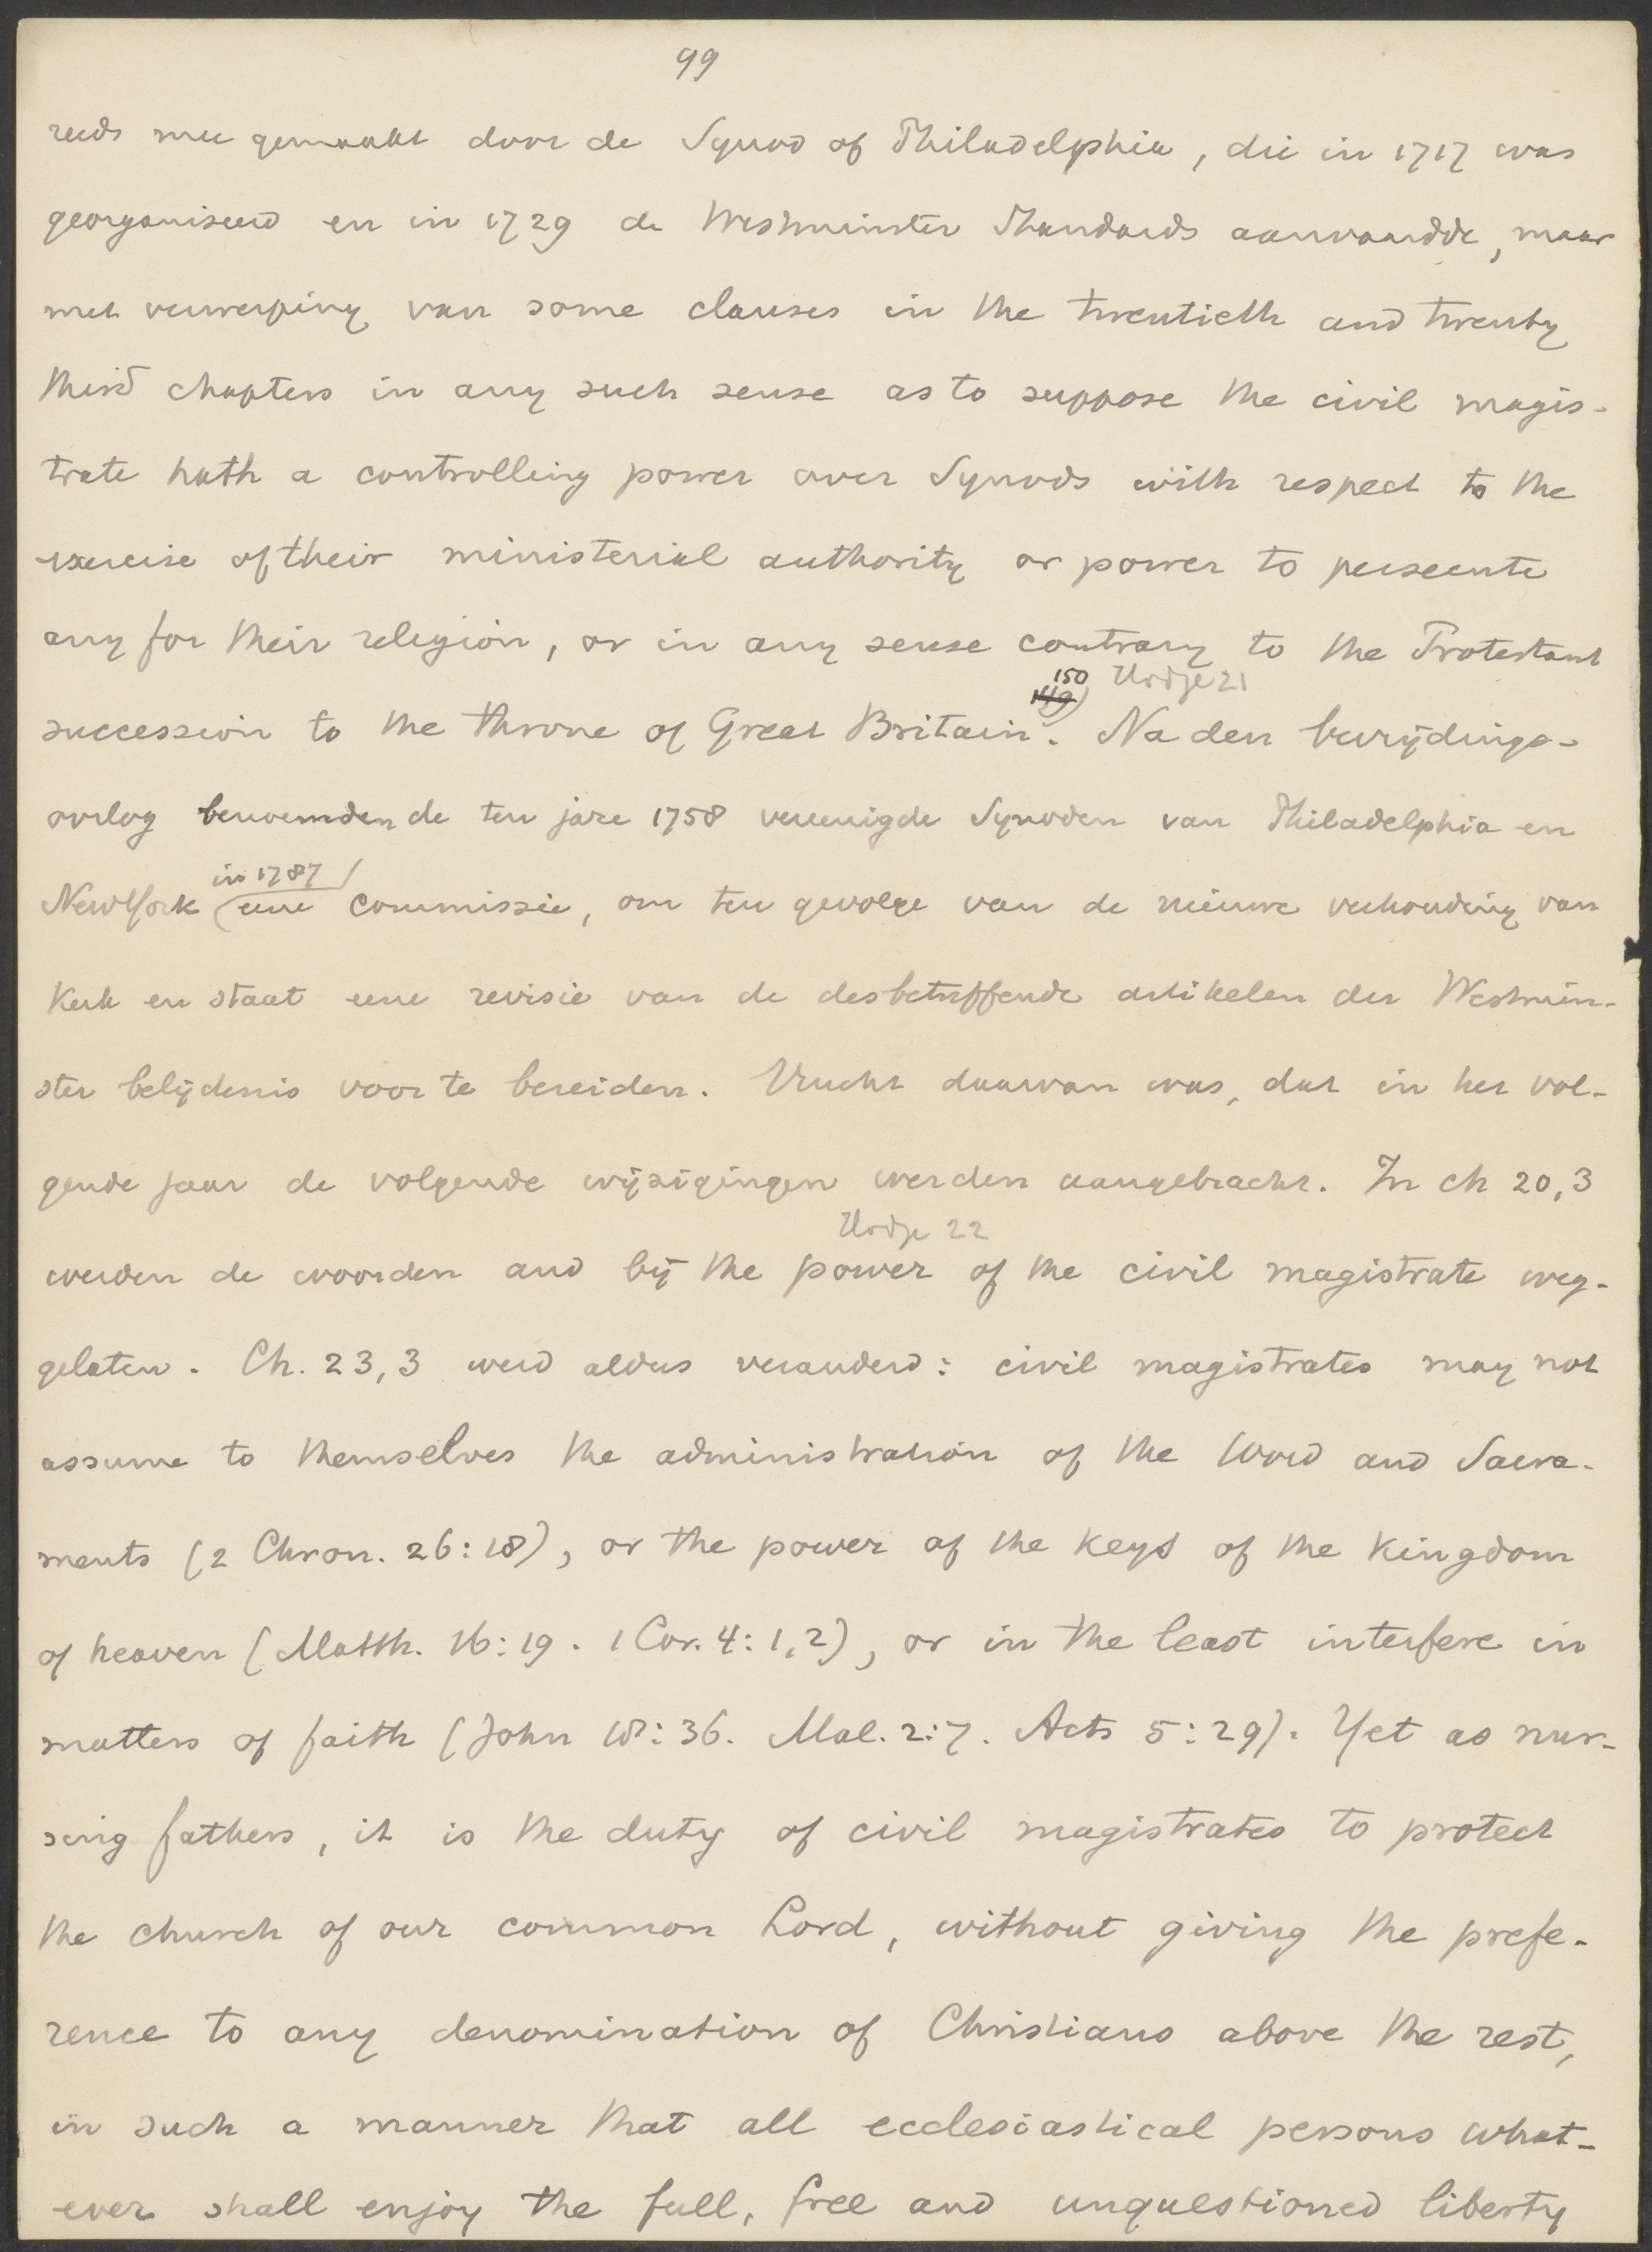 99
reeds mee gemaakt door de Synod of Philadelphia, die in 1717 was
georganiseerd en in 1729 de Westminster Standards aanvaardde, maar
met verwerping van some clauses in the twentieth and twenty
third chapters in any such sense as to suppose the civil magis-
trate hath a controlling power over Synods with respect to the
exercise of their ministerial authority or power to persecute
any for their religion, or in any sense contrary to the Protestant
150 Hodge 21
149)
succession to the throne of Great Britain. Na den bevrijdings-
oorlog benoemden de ten jare 1758 vereenigde Synoden van Philadelphia en
in 1787
New York eene commissie, om ten gevolge van de nieuwe verhouding van
kerk en staat eene revisie van de desbetreffende artikelen der Westmin-
ster belijdenis voor te bereiden. Vrucht daarvan was, dat in het vol-
gende jaar de volgende wijzigingen werden aangebracht. In ch 20,3
Hodge 22
werden de woorden and by the power of the civil magistrate weg-
gelaten. Ch. 23,3 werd aldus veranderd: civil magistrates may not
assume to themselves the administration of the Word and Sacra-
ments (2 Chron. 26:18), or the power of the keys of the kingdom
of heaven (Matth. 16:19. 1 Cor. 4:1,2), or in the least interfere in
matters of faith (John 18:36. Mal. 2:7. Acts 5:29). Yet as nur-
sing fathers, it is the duty of civil magistrates to protect
the church of our common Lord, without giving the prefe-
rence to any denomination of Christians above the rest,
in such a manner that all ecclesiastical persons what-
ever shall enjoy the full, free and unquestioned liberty